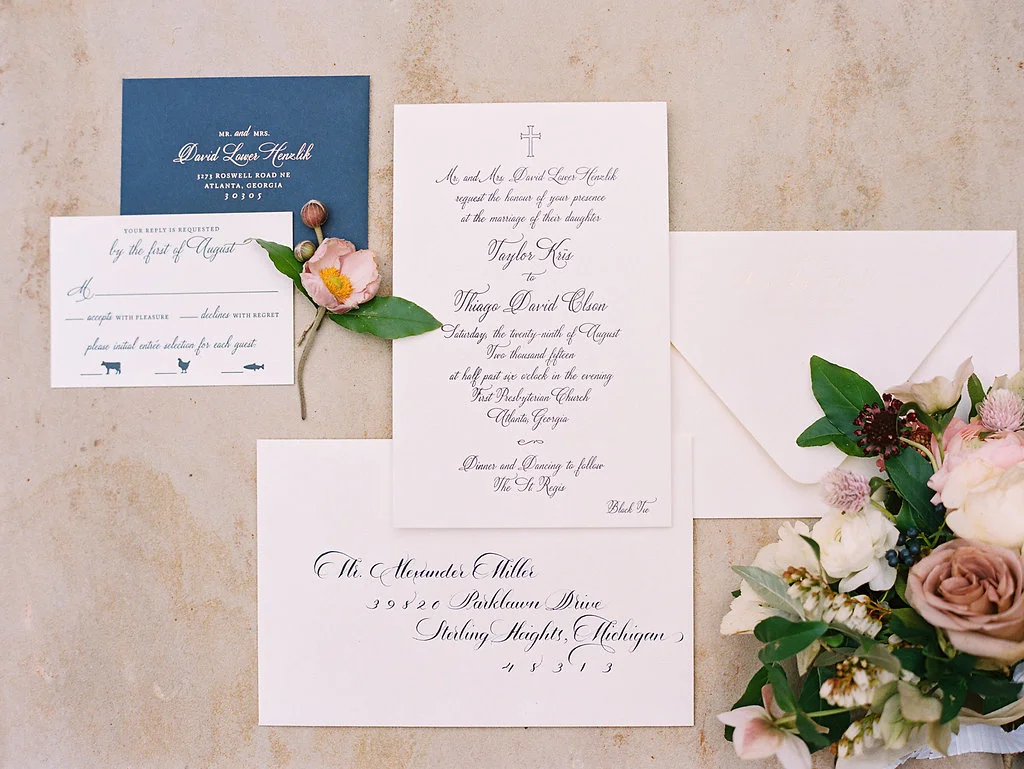 MR. and MRS.
David Lower Henzlik
3273 ROSWELL ROAD NE
ATLANTA, GEORGIA
30305
YOUR REPLY IS REQUESTED
by the first of August
M
accepts WITH PLEASURE declines WITH REGRET
please initial entrée selection for each guest
Mr. and Mrs. David Lower Henzlik
request the honour of your presence
at the marriage of their daughter
Taylor Kris
to
Thiago David Olson
Saturday, the twenty-ninth of August
Two thousand fifteen
at half past six o'clock in the evening
First Presbyterian Church
Atlanta, Georgia
Dinner and Dancing to follow
The St. Regis
Black Tie
Mr. Alexander Miller
39820 Parklawn Drive
Sterling Heights, Michigan
48313